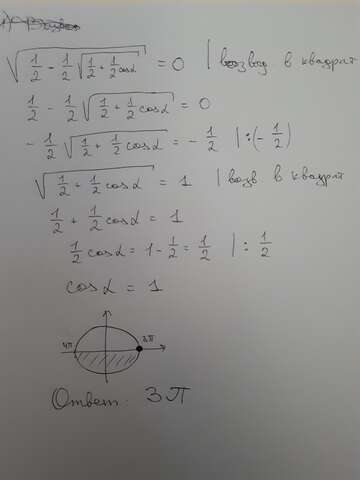 √(1/2 - 1/2 √(1/2 + 1/2 cosα)) = 0 | возвод в квадрат
1/2 - 1/2 √(1/2 + 1/2 cosα) = 0
- 1/2 √(1/2 + 1/2 cosα) = - 1/2 | :(- 1/2)
√(1/2 + 1/2 cosα) = 1 | возв в квадрат
1/2 + 1/2 cosα = 1
1/2 cosα = 1 - 1/2 = 1/2 | : 1/2
cosα = 1
4π 3π
Ответ: 3π